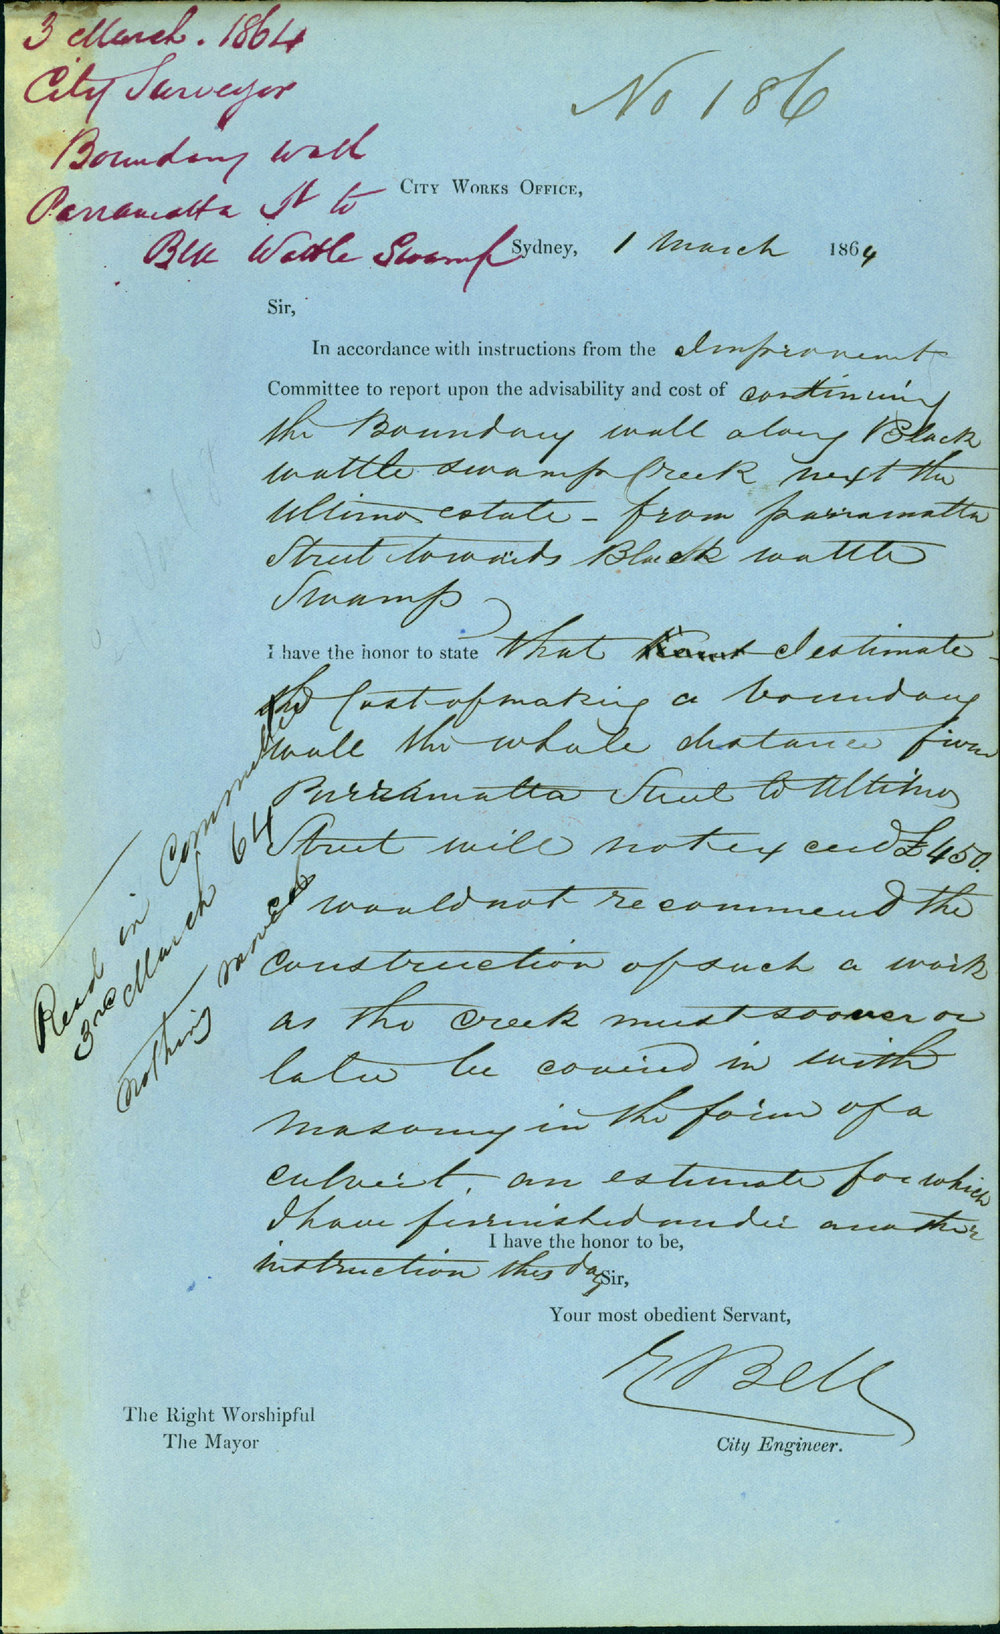 3 March. 1864
City Surveyor
Boundary wall
Parramatta St to
Blk Wattle Swamp
No 186
City Works Office,
Sydney, 1 March 1864
Sir,
In accordance with instructions from the Improvement
Committee to report upon the advisability and cost of continuing
the Boundary wall along Black
wattle swamp Creek next the
Ultimo estate - from parramatta
Street towards Black wattle
Swamp
I have the honor to state that I estimate
the Cost of making a boundary
wall the whole distance from
Parramatta Street to Ultimo
Street will not exceed £450.
I would not recommend the
construction of such a work
as the creek must sooner or
later be covered in with
masonry in the form of a
culvert, an estimate for which
I have furnished under another
instruction this day
I have the honor to be,
Sir,
Your most obedient Servant,
E Bell
City Engineer.
The Right Worshipful
The Mayor
Read in Committee
3rd March 64
nothing moved